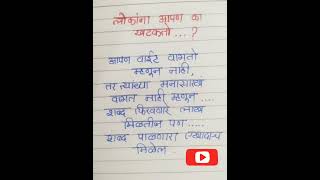 लोकांना आपण का
खटकतो...?
आपण वाईट वागतो
म्हणून नाही,
तर त्यांच्या मनासारखं
वागत नाही म्हणून....
शब्द फिरवणारे लाख
मिळतील पण.....
शब्द पाळणारा एखादाच
मिळेल